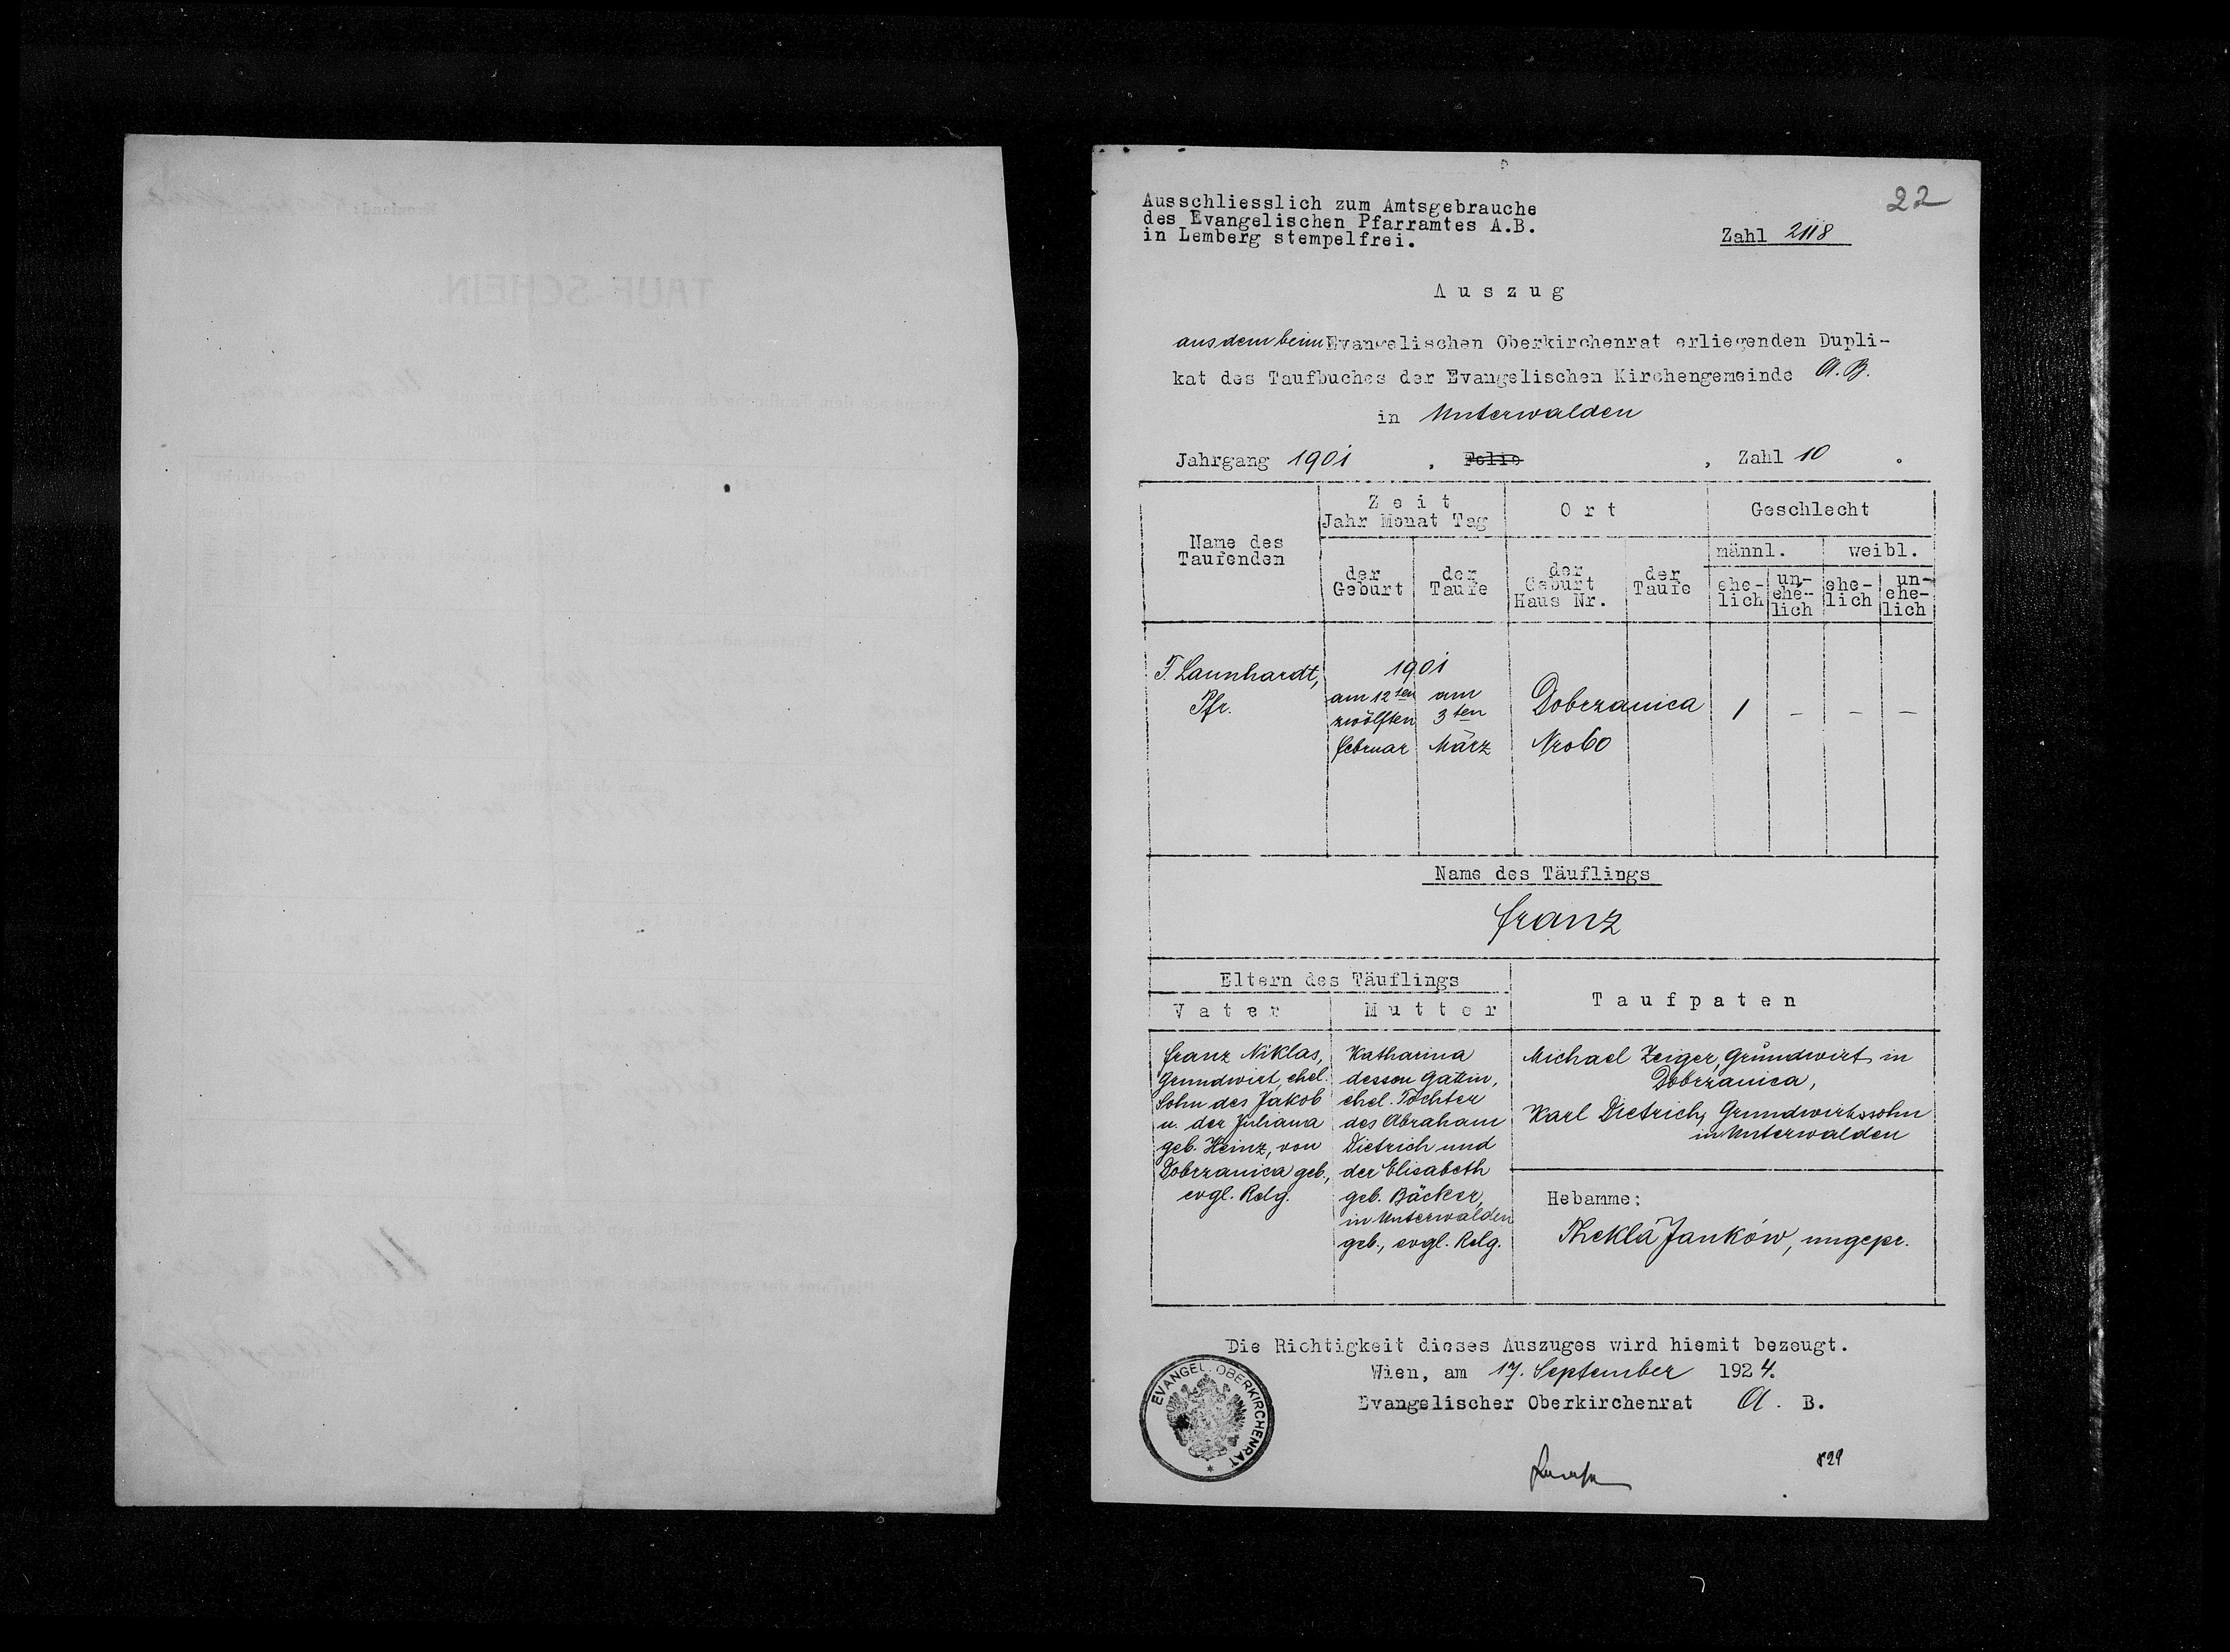 TAUF-SCHEIN.
22
Ausschliesslich zum Amtsgebrauche
des Evangelischen Pfarramtes A.B.
in Lemberg stempelfrei.
Zahl 2118
Auszug
aus dem beim Evangelischen Oberkirchenrat erliegenden Dupli-
kat des Taufbuches der Evangelischen Kirchengemeinde A. B.
in Unterwalden
Jahrgang 1901 , Folio , Zahl 10 .
Name des
Taufenden
Zeit
Jahr Monat Tag
der
Geburt
der
Taufe
Ort
der
Geburt
Haus Nr.
der
Taufe
Geschlecht
männl.
weibl.
ehe-
lich
un-
ehe-
lich
ehe-
lich
un-
ehe-
lich
F. Launhardt,
Pfr.
1901
am 12ten
zwölften
Februar
am
3ten
März
Dobrzanica
Nro 60
1 – – –
Name des Täuflings
Franz
Eltern des Täuflings
Vater
Mutter
Taufpaten
Franz Niklas,
Grundwirt, ehel.
Sohn des Jakob
u. der Juliana
geb. Heinz, von
Dobrzanica geb.,
evgl. Relg.
Katharina
dessen Gattin,
ehel. Tochter
des Abraham
Dietrich und
der Elisabeth
geb. Bäcker,
in Unterwalden
geb., evgl. Relg.
Michael Zeiger, Grundwirt in
Dobrzanica,
Karl Dietrich, Grundwirtssohn
in Unterwalden
Hebamme:
Thekla Janków, ungepr.
Die Richtigkeit dieses Auszuges wird hiemit bezeugt.
Wien, am 17. September 1924.
Evangelischer Oberkirchenrat A. B.
EVANGEL. OBERKIRCHENRAT
829